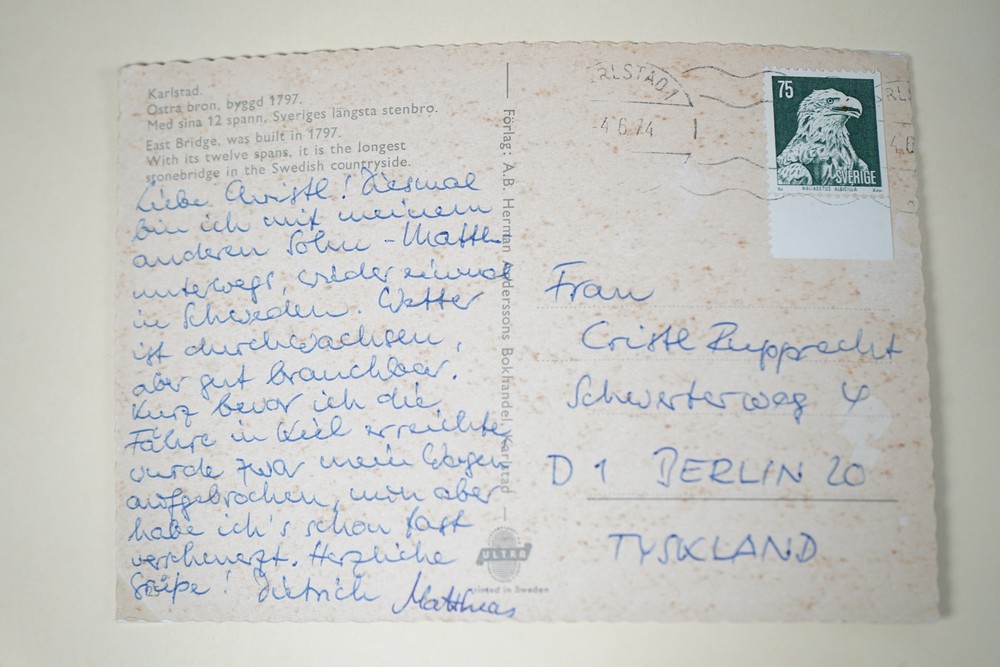 Karlstad.
Östra bron, byggd 1797.
Med sina 12 spann, Sveriges längsta stenbro.
East Bridge, was built in 1797.
With its twelve spans, it is the longest
stonebridge in the Swedish countryside.
Liebe Christl! Diesmal
bin ich mit meinem
anderen Sohn - Matth.
unterwegs, wieder einmal
in Schweden. Wetter
ist durchwachsen,
aber gut brauchbar.
Kurz bevor ich die
Fähre in Kiel erreichte,
wurde zwar mein Wagen
aufgebrochen, nun aber
habe ich's schon fast
verschmerzt. Herzliche
Grüße! Dietrich Matthias
Förlag: A.B. Herman Anderssons Bokhandel, Karlstad
ULTRA
Printed in Sweden
RLSTAD 1
4.6.74
RL
4.6
75
SVERIGE
HALIAEETUS ALBICILLA
Frau
Cristl Rupprecht
Schwerterweg 4
D 1 BERLIN 20
TYSKLAND